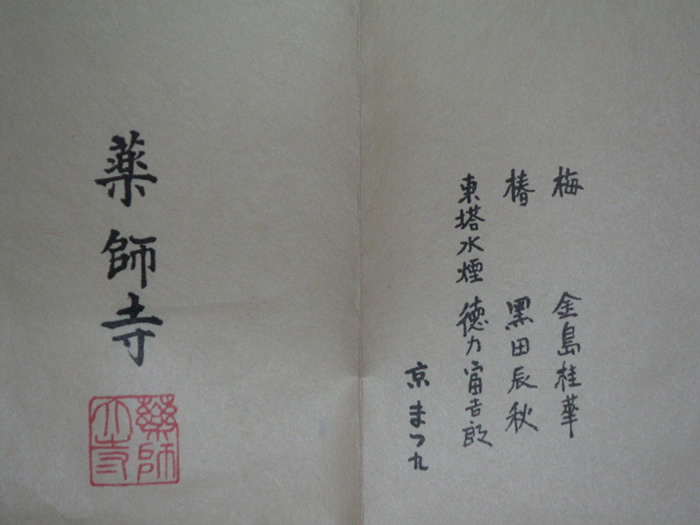 梅 金島桂華
椿 黒田辰秋
東塔水煙 徳力富吉郎
京まつ九
薬師寺
薬師
寺